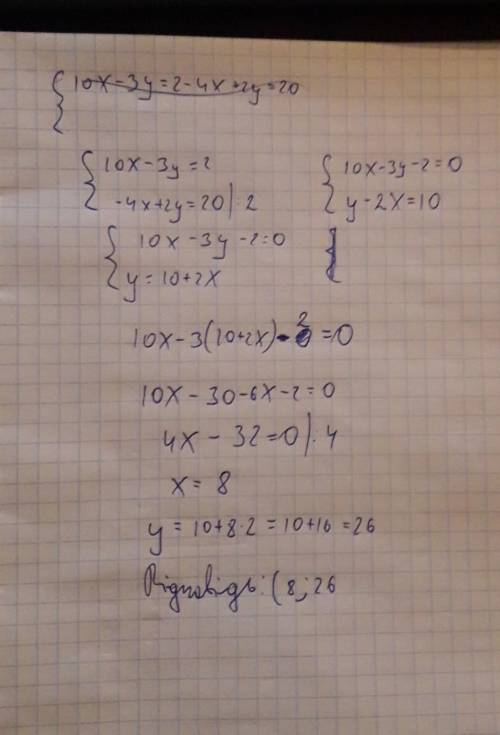 { 10x-3y=2-4x+2y=20
{ 10x-3y=2
-4x+2y=20|:2
{ 10x-3y-2=0
y-2x=10
{ 10x-3y-2=0
y=10+2x
10x-3(10+2x)-2=0
10x-30-6x-2=0
4x-32=0|:4
x=8
y=10+8·2=10+16=26
Відповідь: (8;26